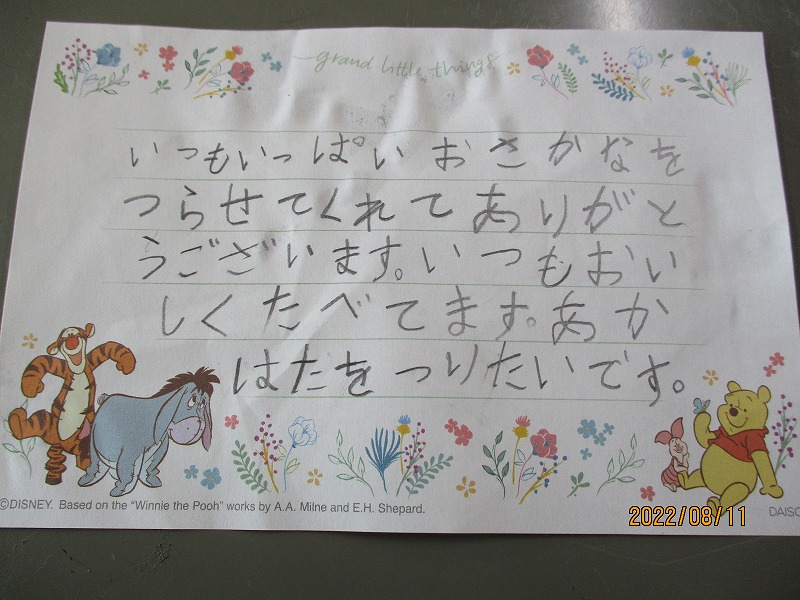 grand little things
いつもいっぱいおさかなを
つらせてくれてありがと
うございます。いつもおい
しくたべてます。あか
はたをつりたいです。
©DISNEY. Based on the "Winnie the Pooh" works by A.A. Milne and E.H. Shepard.
DAISO
2022/08/11